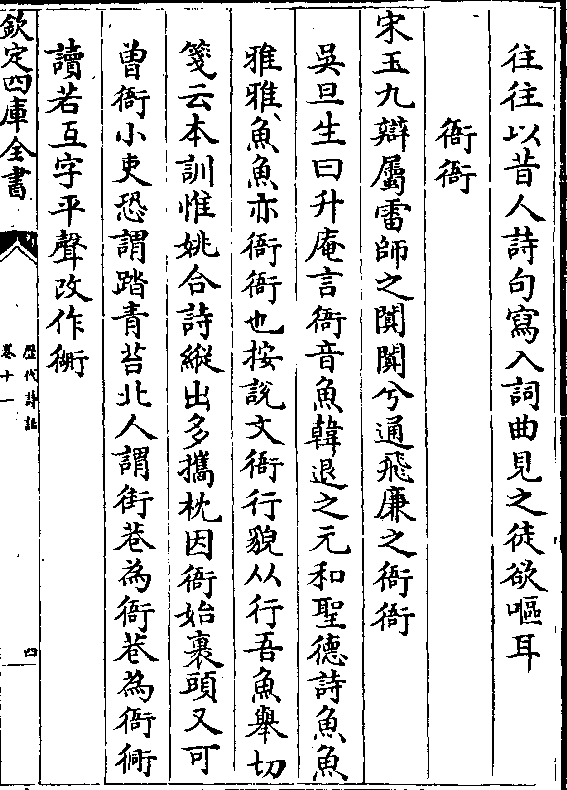 往往以昔人詩句寫入詞曲見之徒欲嘔耳
衙衙
宋玉九辯屬雷師之闐闐兮通飛廉之衙衙
吳旦生曰升庵言衙音魚韓退之元和聖德詩魚魚
雅雅魚魚亦衙衙也按說文衙行貌从行吾魚舉切
箋云本訓惟姚合詩縱出多攜枕因衙始裹頭又可
曾衙小吏恐謂踏青苔北人謂街巷為衙巷為衙衕
讀若互字平聲改作衚
欽定四庫全書
歷代詩話
卷十一
四